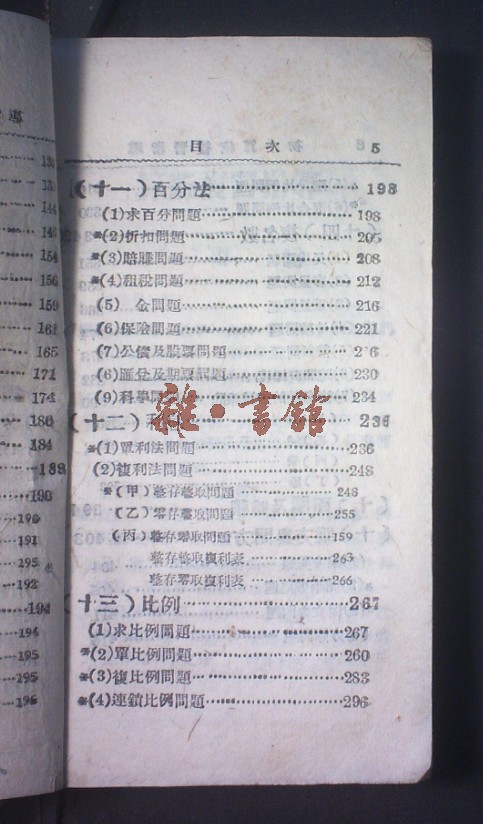 目 次 5
(十一)百分法 198
(1)求百分問題 198
*(2)折扣問題 205
*(3)賠賺問題 208
*(4)租稅問題 212
(5) 金問題 216
(6)保險問題 221
(7)公債及股票問題 2 6
(8)匯兌及期票問題 230
(9)科學 234
(十二) 236
*(1)單利法問題 236
(2)複利法問題 248
*(甲)整存整取問題 248
(乙)零存整取問題 255
(丙)整存零取問題 159
整存整取複利表 263
整存零取複利表 266
(十三)比例 267
(1)求比例問題 267
*(2)單比例問題 260
*(3)複比例問題 283
*(4)連鎖比例問題 296
雜·書館
144
154
159
161
165
171
174
180
184
188
190
190
191
195
192
194
194
195
195
196